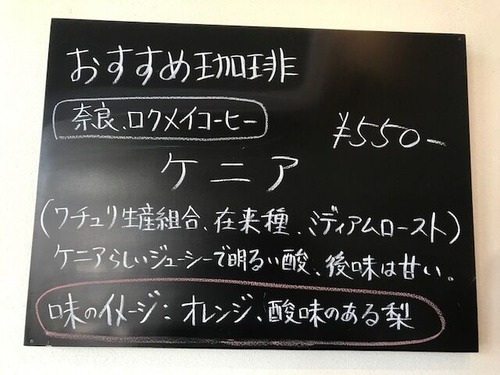 おすすめ珈琲
奈良、ロクメイコーヒー
¥550-
ケニア
(ワチュリ生産組合、在来種、ミディアムロースト)
ケニアらしいジューシーで明るい酸、後味は甘い。
味のイメージ：オレンジ、酸味のある梨